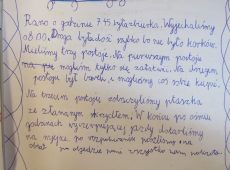 Rano o godzinie 7:45 była zbiórka. Wyjechaliśmy
08:00. Droga była dość szybka bo nie było korków.
Mieliśmy trzy postoje. Na pierwszym postoju
na nie mogłam tylko się załatwić. Na drugim
postoju był barek, i mogliśmy coś sobie kupić.
Na trzecim postoju zobaczyliśmy ptaszka
ze złamanym skrzydłem. W końcu po ośmiu
godzinach wyczerpującej jazdy dotarliśmy
na miejsce po rozpakowaniu poszliśmy na
obiad po obiedzie pani wszystko nam